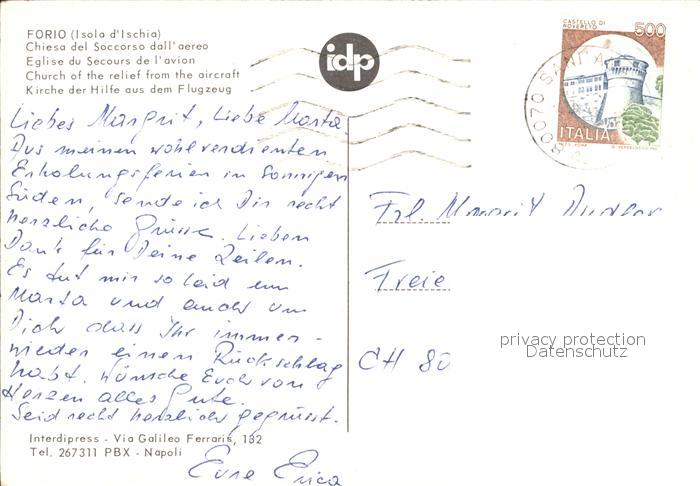 FORIO (Isola d'Ischia)
Chiesa del Soccorso dall'aereo
Eglise du Secours de l'avion
Church of the relief from the aircraft
Kirche der Hilfe aus dem Flugzeug
idp
CASTELLO DI
ROVERETO
500
ITALIA
80070 SANT'A
Liebes Margrit, Liebe Marta
Aus meinen wohlverdienten
Erholungsferien im Sonnigen
Süden, sende ich Dir recht
herzliche Grüsse. Lieben
Dank für Deine Zeilen.
Es tut mir so leid um
Marta und auch um
Dich dass Ihr immer-
wieder einen Rückschlag
habt. Wünsche Euch von
Herzen alles Gute.
Seid recht herzlich gegrüsst.
Eure Erica
Frl. Margrit
Freie
CH 80
privacy protection
Datenschutz
Interdipress - Via Galileo Ferraris, 132
Tel. 267311 PBX - Napoli